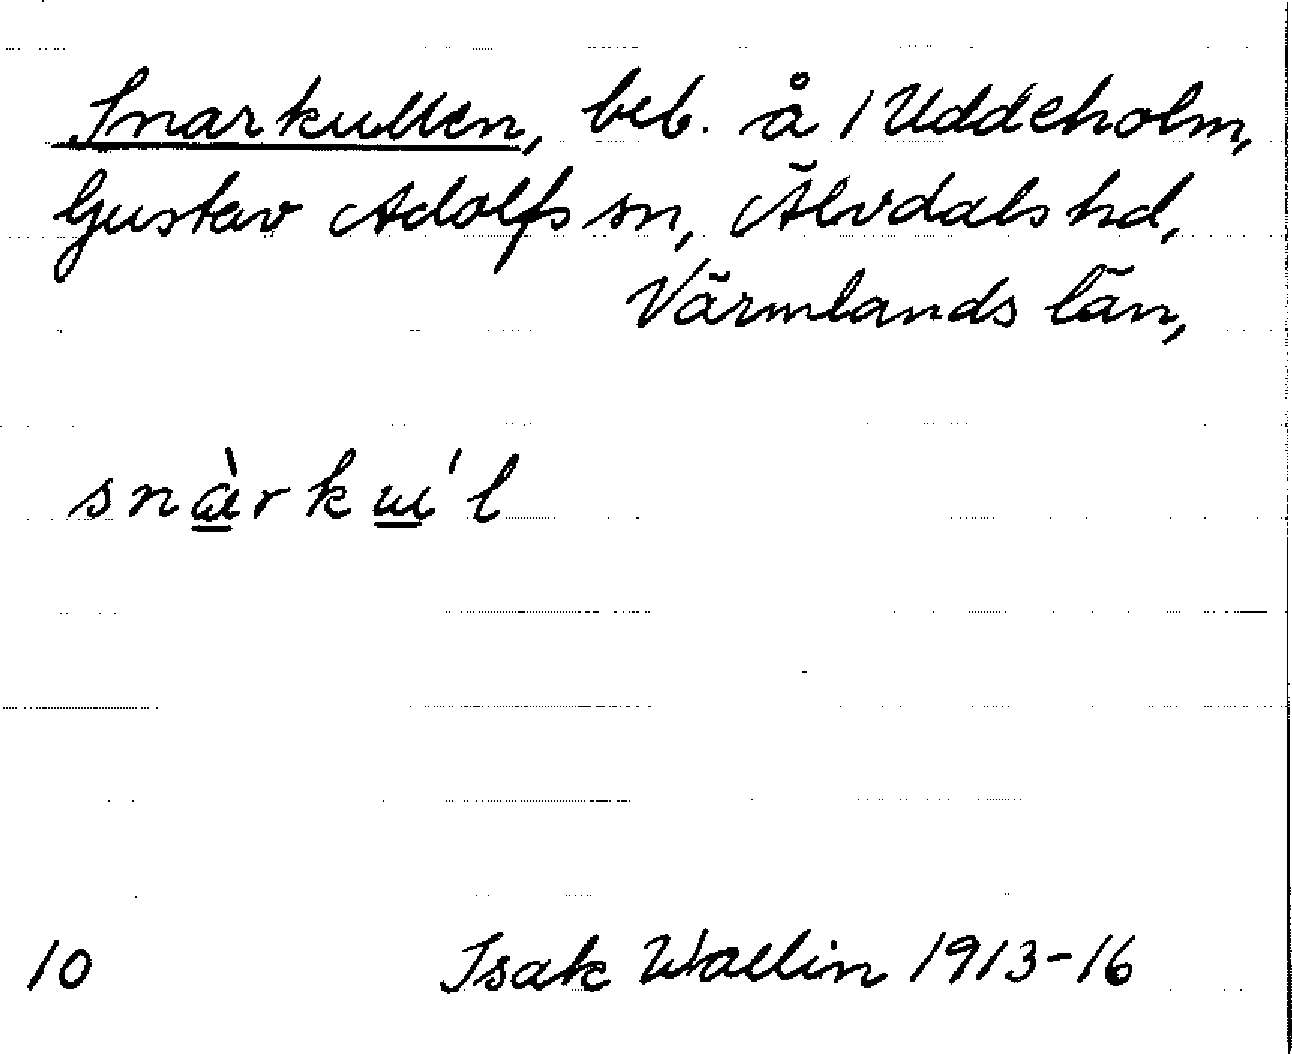 Snarkullen, beb. å 1 Uddeholm,
Gustav Adolfs sn, Älvdals hd,
Värmlands län,
snàrku'l
10 Isak Wallin 1913-16